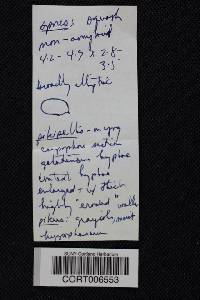 spores: smooth
non-amyloid
4.2 - 4.9 x 2.8-
3.5
broadly elliptic
pileipellis - in
gelatinous hyphae
hyphae
enlarged - w thick
highly "eroded" walls
pileus: grayish, moist
hygrophanous
SUNY Cortland Herbarium
CORT006553